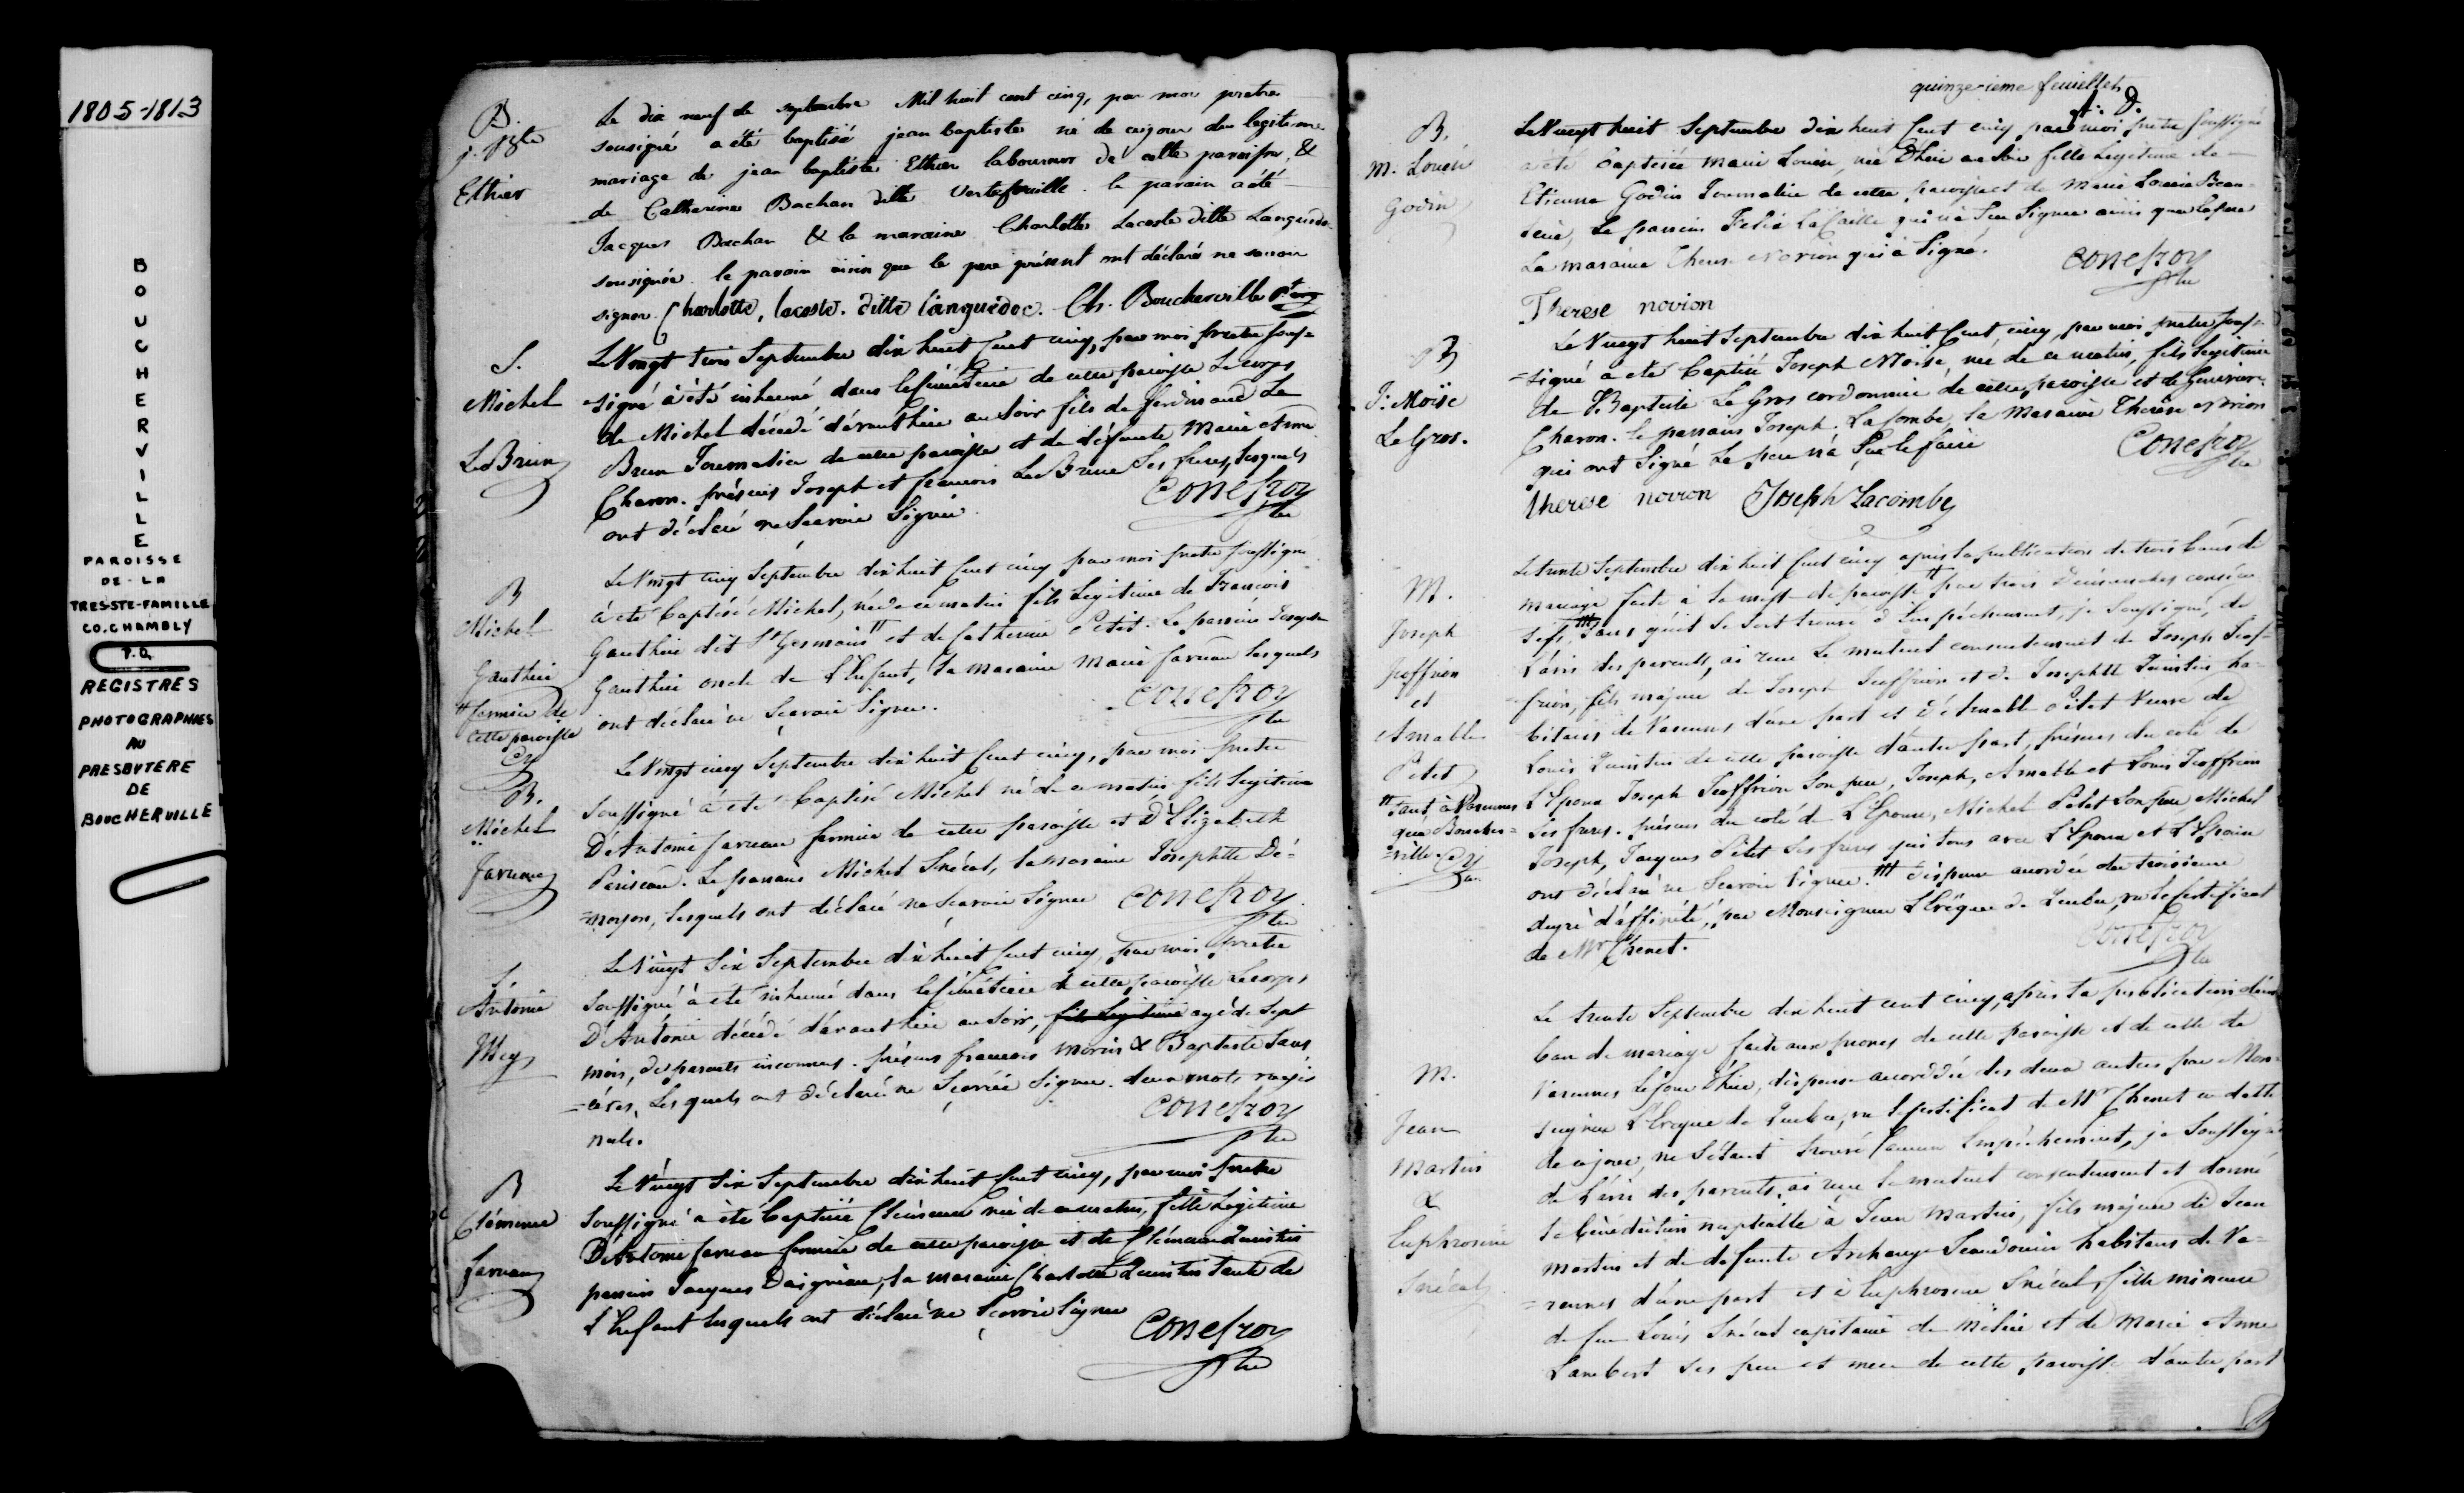 1805-1813
BOUCHERVILLE
PAROISSE
DE-LA
TRES-STE-FAMILLE
CO.CHAMBLY
P.Q.
REGISTRES
PHOTOGRAPHIES
AU
PRESBYTERE
DE
BOUCHERVILLE
B.
j. Bte
Ethier
Le dix neuf de septembre Mil huit cent cinq, par moi pretre
sousigné a été baptisé jean baptiste né de cejour du legitime
mariage de jean baptiste Ethier laboureur de cette paroisse, &
de Catherine Bachan ditte Vertefeuille. le parain a été
Jacques Bachan & la maraine Charlotte Lacoste ditte Languedoc
sousignée. le parain ainsi que le pere présent ont déclarés ne savoir
signer. Charlotte, lacoste. ditte languedoc. Ch. Boucherville
S.
Michel
LeBrun
Le Vingt trois Septembre dix huit Cent cinq, par moi pretre sous=
=signé à été inhumé dans le cimetiere de cette paroisse Le corps
de Michel décédé d'avanthier au Soir fils de ferdinand Le
Brun Journalier de cette paroisse et de défunte Marie Anne
Charon. présens Joseph et francois Le Brun Ses freres, lesquels
ont déclaré ne Scavoir Signer.
Conefroy
ptre
B
Michel
Gauthier
# fermier de
cette paroisse
Cy
Le Vingt cinq Septembre dix huit Cent cinq par moi pretre soussigné
à été baptisé Michel, né de ce matin fils Legitime de Francois
Gauthier dit St Germain # et de Catherine Petit. Le parrain Joseph
Gauthier oncle de L'Enfant, La maraine Marie favreau lesquels
ont déclaré ne Scavoir Signer.
Conefroy
ptre
B.
Michel
favreau
Le Vingt cinq Septembre dix huit Cent cinq, par moi pretre
Soussigné à été Baptisé Michel né de ce matin fils legitime
D'Antoine favreau fermier de cette paroisse et D'Elizabeth
Pariseau. Le parrain Michel Snécal, la maraine Josephtte Dé=
=noyon, lesquels ont déclaré ne Scavoir Signer
Conefroy
ptre
S.
Antoine
Le Vingt Six Septembre dix huit Cent cinq, par moi pretre
Soussigné à été inhumé dans le cimetiere de cette paroisse Le corps
D'Antoine décédé d'avanthier au Soir, fils Legitime agé de Sept
mois, de parents inconnus. présens francois Morin & Baptiste Sans
=, Lesquels ont déclaré ne Scavoir Signer. deux mots rayés
nuls.
Conefroy
ptre
B
Clémence
favreau
Le Vingt Six Septembre dix huit Cent cinq, par moi pretre
Soussigné a été baptisée Clémence née de ce matin, fille Legitime
D'Antoine favreau fermier de cette paroisse et de Clémence Quintin
parrain Jacques Daigneau, la maraine Charlotte Quintin Tante de
L'Enfant lesquels ont déclaré ne Scavoir Signer
Conefroy
ptre
quinze-ieme feuillet
B.
M. Louise
Godin
Le Vingt huit Septembre dix huit Cent cinq par moi pretre soussigné
a été baptisée Marie Louise, née D'hier au Soir fille Legitime de
Etienne Godin Journalier de cette paroisse et de Marie Louise Beau
, Le parrain Felix LaCaille qui n'a Scu Signer ainsi que Le pere
La maraine Therese Novion qui à Signé.
Conefroy
ptre
Therese novion
B
J. Moïse
Le Gros.
Le Vingt huit Septembre dix huit Cent cinq, par moi pretre sous=
=signé a été baptisé Joseph Moïse, né de ce matin, fils legitime
de J. Baptiste Le Gros cordonnier de cette paroisse et de Genevieve
Charon. le parrain Joseph Lacombe, la Maraine Therese Novion
qui ont Signé Le pere n'a Scu le faire
Conefroy
ptre
therese novion Joseph Lacombe
M.
Joseph
Jeoffrion
et
Amable
Petit
# tant à Varennes
qu'à Boucher=
=ville
Le trente Septembre dix huit Cent cinq après la publication de trois bans de
mariage faite à la messe de paroisse # par trois Dimanches consécu
tifs, ### Sans qu'il Se Soit trouvé d'Empêchement, je Soussigné, de
L'avis des parents, ai recu Le mutuel consentement de Joseph Jeof=
=frion, fils majeur de Joseph Jeoffrion et de Josephtte Quintin ha=
bitans de Varennes d'une part et d'Amable Petit Veuve de
Louis Quintin de cette paroisse d'autre part, présens du coté de
L'Epoux Joseph Jeoffrion Son pere, Joseph, Amable et Louis Jeoffrion
Ses freres. présens du coté de L'Epouse, Michel Petit Son pere Michel
Joseph, Jacques Petit Ses freres qui tous avec L'Epoux et L'Epouse
ont déclaré ne Scavoir Signer. ### dispense accordée du troisieme
degré d'affinité, par Monseigneur L'Evêque de Quebec, vu le Certificat
de Mr Chenet.
Conefroy
ptre
M.
Jean
Martin
&
Euphrosine
Snécal
Le trente Septembre dix huit cent cinq, après la publication d'un
ban de mariage faite aux prones de cette paroisse et de celle de
Varennes Le jour d'hier, dispense accordée des deux autres par Mon=
seigneur L'Evêque de Quebec, vu le certificat de Mr Chenet en datte
de ce jour, ne S'étant trouvé aucun Empêchement, je Soussigné
de L'avis des parents, ai reçu le mutuel consentement et donné
la bénédiction nuptialle à Jean Martin, fils majeur de Jean
Martin et de defunte Archange Jeaudouin habitans de Va=
=rennes d'une part et à Euphrosine Snécal, fille mineure
de feu Louis Snécal capitaine de milice et de Marie Anne
Lambert Ses pere et mere de cette paroisse d'autre part